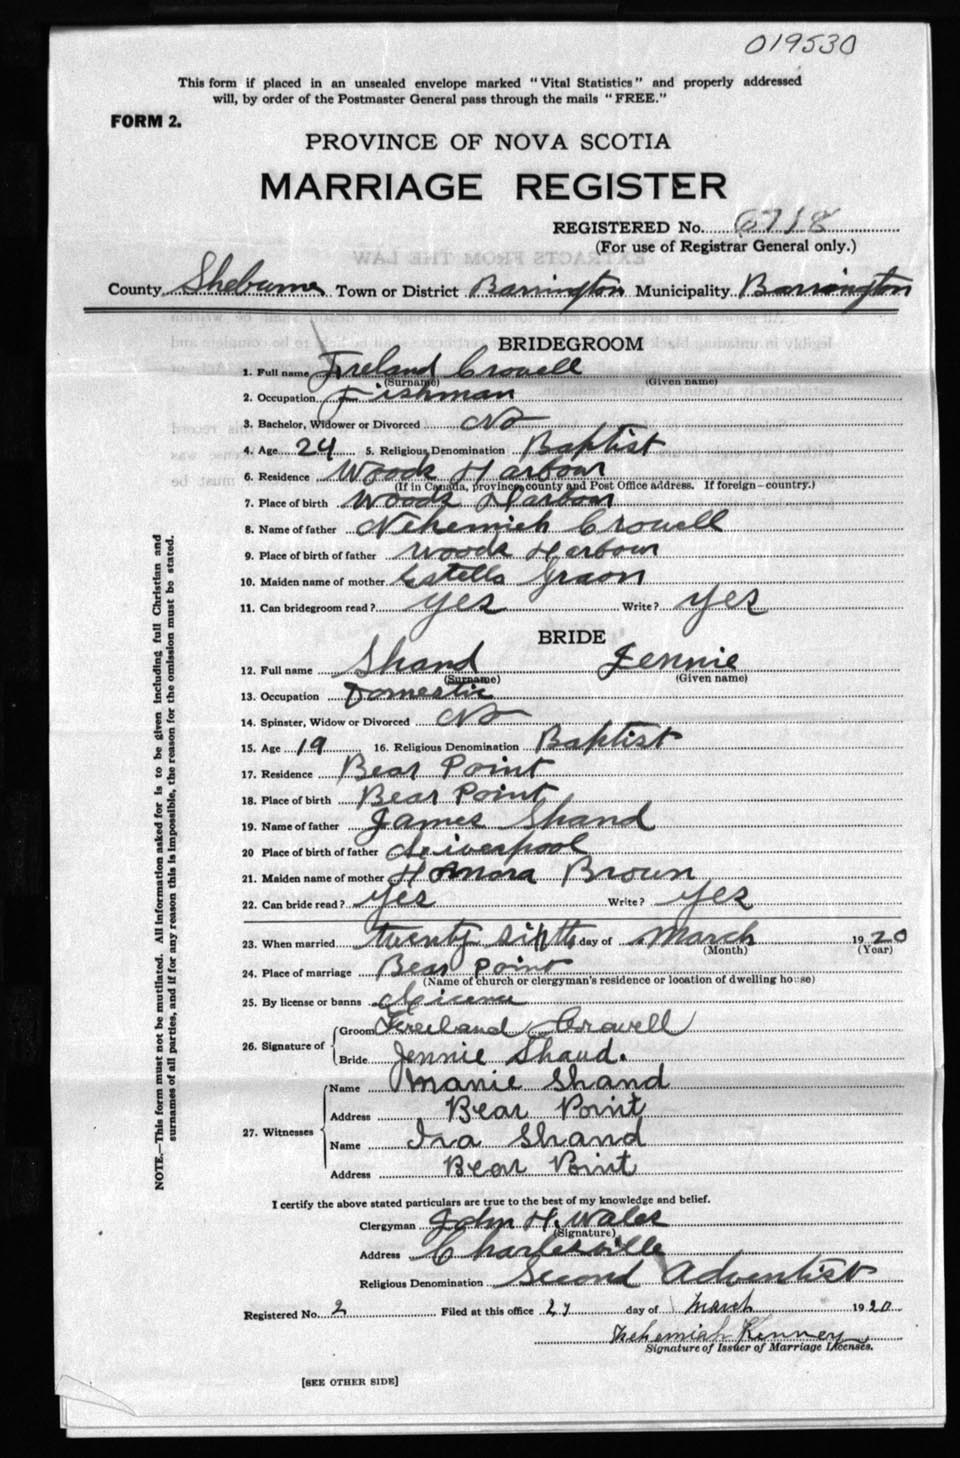 019530
This form if placed in an unsealed envelope marked "Vital Statistics" and properly addressed
will, by order of the Postmaster General pass through the mails "FREE."
FORM 2.
PROVINCE OF NOVA SCOTIA
MARRIAGE REGISTER
REGISTERED No. 6718
(For use of Registrar General only.)
County Sheburne Town or District Barrington Municipality Barrington
BRIDEGROOM
1. Full name Freland Crowell
(Surname) (Given name)
2. Occupation Fishman
3. Bachelor, Widower or Divorced No
4. Age 24 5. Religious Denomination Baptist
6. Residence Woods Harbour
(If in Canada, province, county and Post Office address. If foreign—country.)
7. Place of birth Woods Harbour
8. Name of father Nehemiah Crowell
9. Place of birth of father Woods Harbour
10. Maiden name of mother Estella
11. Can bridegroom read? yes Write? yes
BRIDE
12. Full name Shand Jennie
(Surname) (Given name)
13. Occupation Domestic
14. Spinster, Widow or Divorced No
15. Age 19 16. Religious Denomination Baptist
17. Residence Bear Point
18. Place of birth Bear Point
19. Name of father James Shand
20 Place of birth of father Liverpool
21. Maiden name of mother Honora Brown
22. Can bride read? yes Write? yes
23. When married twenty sixth day of March 1920
(Month) (Year)
24. Place of marriage Bear Point
(Name of church or clergyman's residence or location of dwelling house)
25. By license or banns Licence
26. Signature of Groom Freeland Crowell
Bride Jennie Shand.
27. Witnesses Name Manie Shand
Address Bear Point
Name Ira Shand
Address Bear Point
I certify the above stated particulars are true to the best of my knowledge and belief.
Clergyman John H. Wales
(Signature)
Address Charlesville
Religious Denomination Second Adventist
Registered No. 2 Filed at this office 27 day of March 1920
Nehemiah Kenney
Signature of Issuer of Marriage Licenses.
[SEE OTHER SIDE]
NOTE.—This form must not be mutilated. All information asked for is to be given including full Christian and
surnames of all parties, and if for any reason this is impossible, the reason for the omission must be stated.